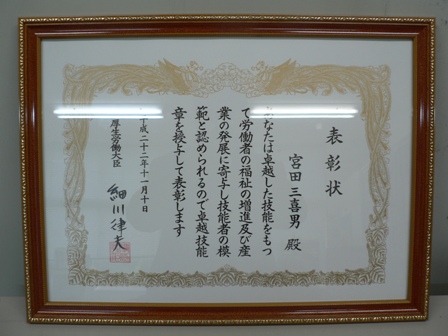 表彰状
宮田三喜男 殿
あなたは卓越した技能をもつ
て労働者の福祉の増進及び産
業の発展に寄与し技能者の模
範と認められるので卓越技能
章を授与して表彰します
平成二十二年十一月十日
厚生労働大臣
細川律夫